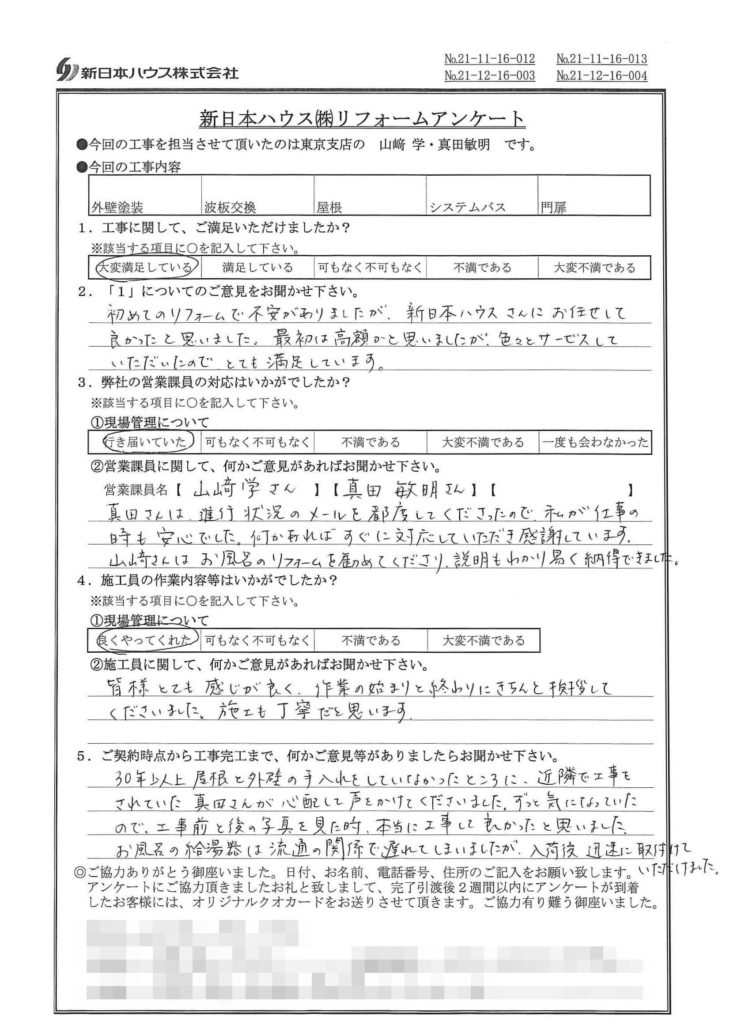 新日本ハウス株式会社
No.21-11-16-012 No.21-11-16-013
No.21-12-16-003 No.21-12-16-004
新日本ハウス㈱リフォームアンケート
●今回の工事を担当させて頂いたのは東京支店の 山﨑 学・真田敏明 です。
●今回の工事内容
外壁塗装 波板交換 屋根 システムバス 門扉
1．工事に関して、ご満足いただけましたか？
※該当する項目に○を記入して下さい。
大変満足している 満足している 可もなく不可もなく 不満である 大変不満である
2．「1」についてのご意見をお聞かせ下さい。
初めてのリフォームで不安がありましたが、新日本ハウスさんにお任せして
良かったと思いました。最初は高額かと思いましたが、色々とサービスして
いただいたので、とても満足しています。
3．弊社の営業課員の対応はいかがでしたか？
※該当する項目に○を記入して下さい。
①現場管理について
行き届いていた 可もなく不可もなく 不満である 大変不満である 一度も会わなかった
②営業課員に関して、何かご意見があればお聞かせ下さい。
営業課員名【 山﨑学さん 】【真田 敏明さん】【 】
真田さんは、進行状況のメールを都度してくださったので、私が仕事の
時も安心でした。何かあればすぐに対応していただき感謝しています。
山﨑さんはお風呂のリフォームを勧めてくださり、説明もわかり易く納得できました。
4．施工員の作業内容等はいかがでしたか？
※該当する項目に○を記入して下さい。
①現場管理について
良くやってくれた 可もなく不可もなく 不満である 大変不満である
②施工員に関して、何かご意見があればお聞かせ下さい。
皆様とても感じが良く、作業の始まりと終わりにきちんと挨拶して
くださいました。施工も丁寧だと思います。
5．ご契約時点から工事完工まで、何かご意見等がありましたらお聞かせ下さい。
30年以上屋根と外壁の手入れをしていなかったところに、近隣で工事を
されていた真田さんが心配して声をかけてくださいました。ずっと気になっていた
ので、工事前と後の写真を見た時、本当に工事して良かったと思いました。
お風呂の給湯器は流通の関係で遅れてしまいましたが、入荷後迅速に取付けて
いただけました。
◎ご協力ありがとう御座いました。日付、お名前、電話番号、住所のご記入をお願い致します。
アンケートにご協力頂きましたお礼と致しまして、完了引渡後２週間以内にアンケートが到着
したお客様には、オリジナルクオカードをお送りさせて頂きます。ご協力有り難う御座いました。